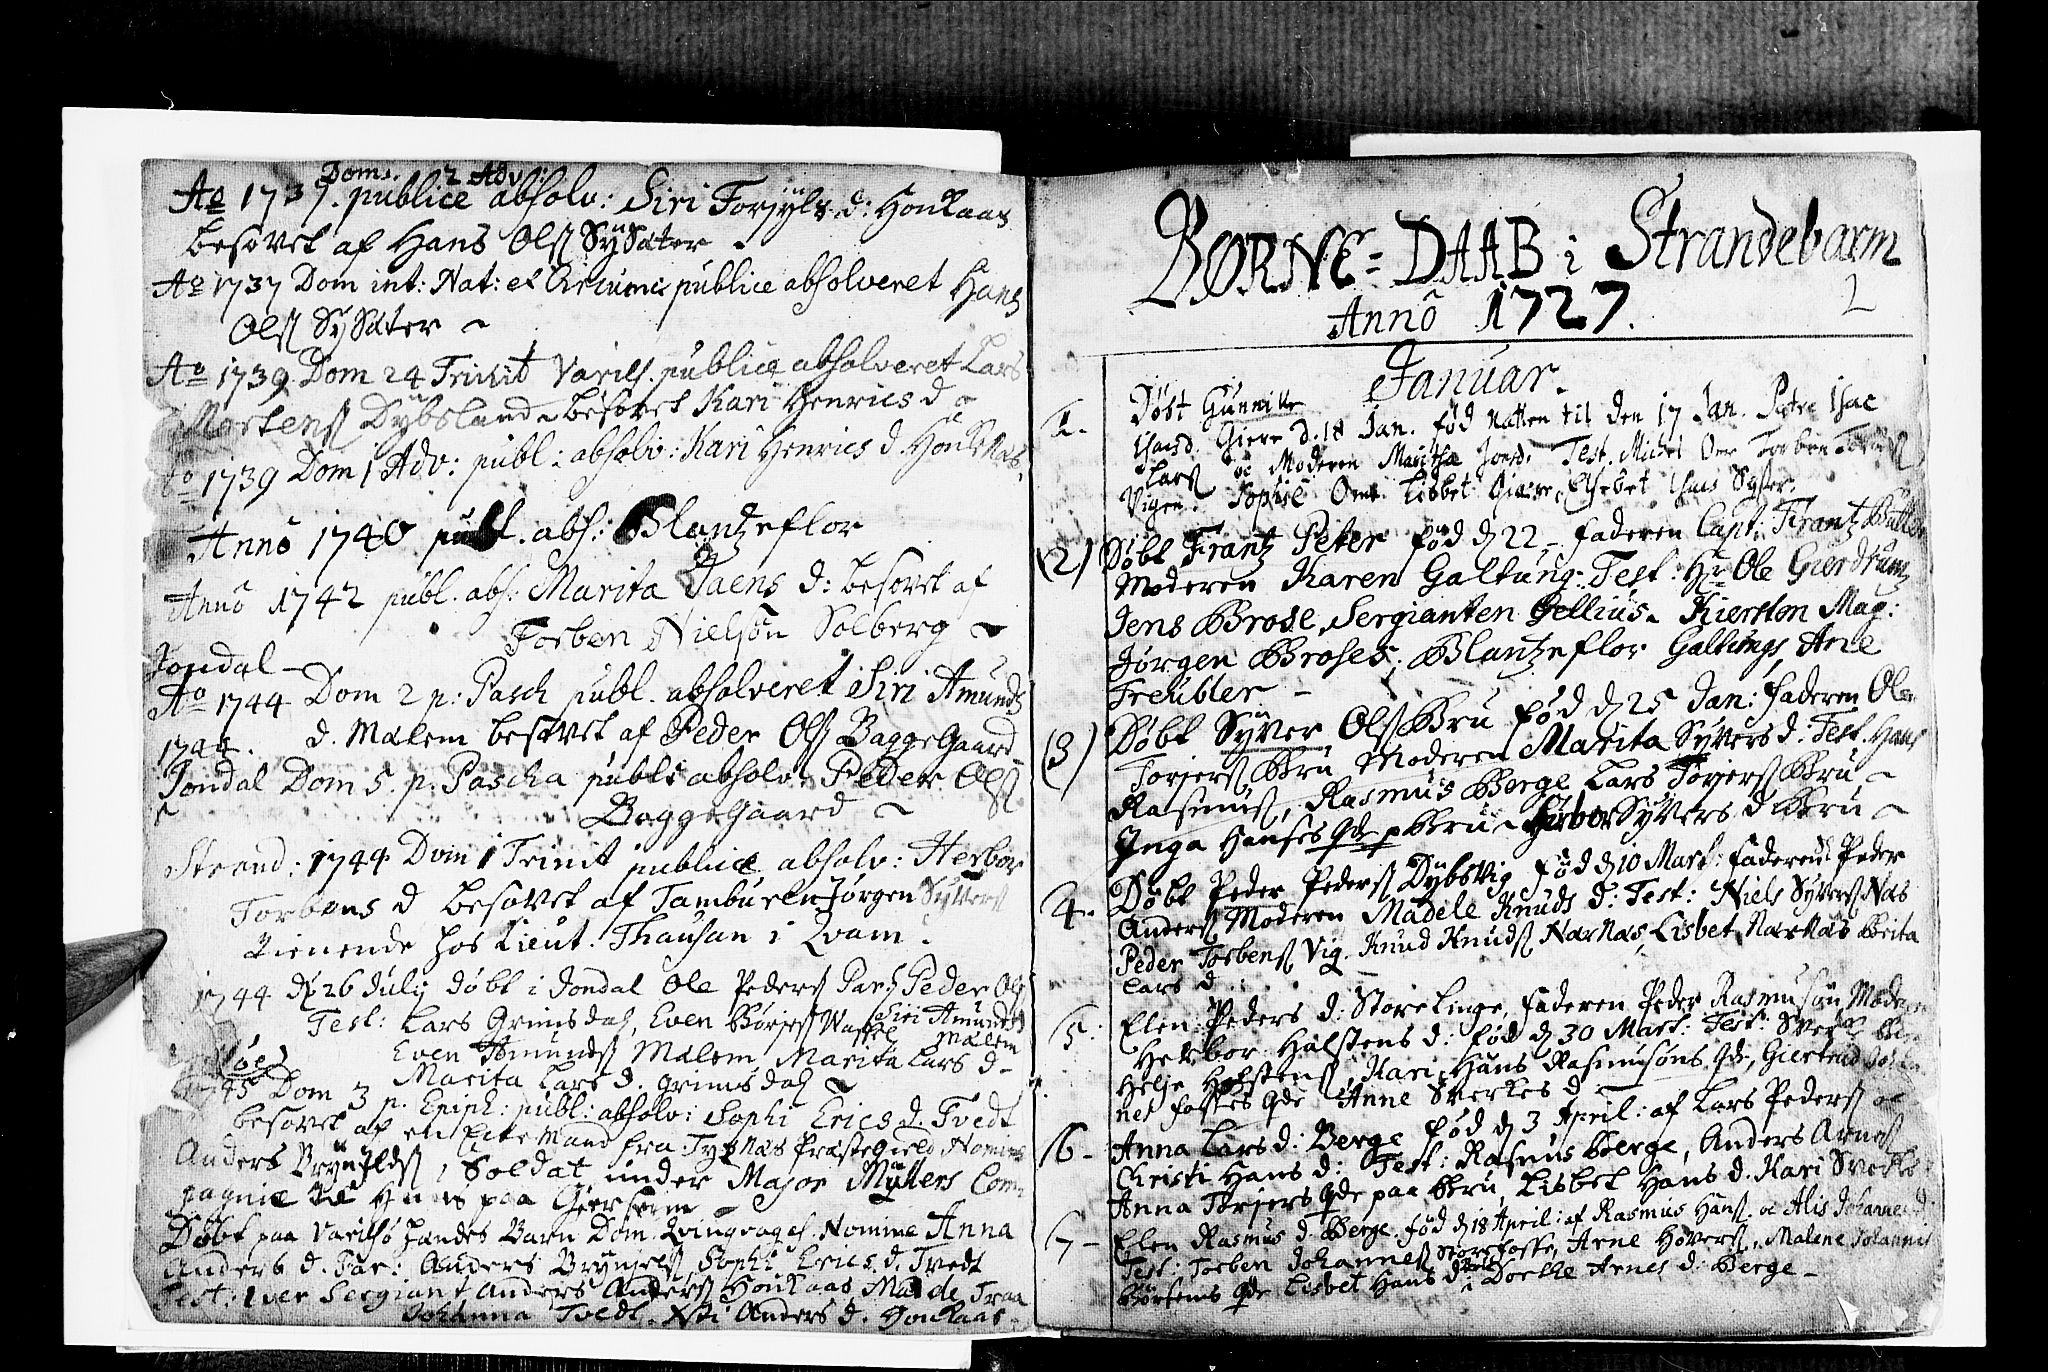 Doms. 2 Adv:
Ao 1737. publice absolv: Siri Torjyls d: Honkaas
besovet af Hans Olss SySæter
Ao 1737 Dom int: Nat: et Circumc publice absolveret Hans
Olss SySæter
Ao 1739 Dom 24 Trinit Varils. publice absolveret Lars
Mortenss Dybsland besovet Kari Henrics d
Ao 1739 Dom 1 Adv: publ: absolv: Kari Henrics d. Honkaas
Anno 1740 publ. abs: Blantzeflor
Anno 1742 publ. abs: Marita Jaens d: besovet af
Torben Nielsøn Solberg
Jondal
Ao 1744 Dom 2 p: Pasch publ. absolveret Siri Amunds
d. Malem besovet af Peder Olss BaggeGaard
1744.
Jondal Dom 5. p. Pascha publ: absolv: Peder Olss
BaggeGaard
Strand: 1744 Dom 1 Trinit publice absolv: Herbor
Torbens d besovet af Tambueren Jørgen Syverss
tienende hos Lieut. Thausan i Qvam.
1744 d 26 July døbt i Jondal Ole Pederss Par: Peder Olss
Siri Amunds d Malem
Test: Lars Grimsdal, Even Børjess
Even Amundss Malem Marita Lars d
Marita Lars d. Grimsdal
1745 Dom 3 p. Epiph: publ: absolv: Sophi Erics d. Tvedt
besovet af en Ecte Mand fra Tysnæs Præstegield Nomine
Anders Brynildss, Soldat under Major Müllers Com-
pagnie paa
Døbt paa Varilsø handes Barn Dom. Qvinqvages. Nomine Anna
Anders d. Par: Anders Brynjelss Sophi Erics d. Tvedt
Test: Iver Sergiant Anders Anderss Honkaas Made Traa
Johanna Tvedt. Xsti Anders d. Honkaas.
BØRNE=DAAB i Strandebarm
2
Anno 1727.
Januar.
1. Døbt Gunnilde
Isacsd. Giere d. 18 Jan. fød Natten til den 17 Jan. Patre Isac
Larss oc Moderen Maritha Joensd. Test. Michel Torben
Vigen. Sophie Omt Lisbet Giære, Elsebet Isacs Syster.
(2) Døbt Frantz Peter fød d 22 faderen Capt: Frantz Bütler
Moderen Karen Galtung: Test: Hr Ole Gierdrum
Jens Brose, Sergianten Gellius. Kiersten Mag:
Jørgen Broses, Blantzeflor Galtungs, Ane
Treubler
(3) Døbt Syver Olss Bru fød d 25 Jan: Faderen Ole
Torjerss Bru Moderen Marita Syvers d. Test. Hans
Rasmuss, Rasmus Berge Lars Torjerss Bru
Inga Hanses Qde p Bru Herbor Syvers d Bru
4. Døbt Peder Pederss Dybsvig fød d 10 Mart: faderen Peder
Anderss Moderen Madele Knuds d: Test: Niels Syverss Næs
Peder Torbenss Vig. Knud Knudss NærNæs, Lisbet NærNæs Brita
Lars d
5. Elen Peders d: Store Linge, faderen Peder Rasmusøn Moderen
Herbor Halstens d: fød d 30 Mart: Test: Sverk
Helje Holstenss, Kari Hans Rasmusøns Qde, Giertrud Johan-
nes Fosses Qde Anne Sverkes d
6 Anna Lars d: Berge fød d 3 April: af Lars Pederss oc
Christi Hans d: Test: Rasmus Berge, Anders Arness
Anna Torjers Qde paa Bru, Lisbet Hans d. Kari Sverkes
7 Elen Rasmus d Berge fød d 18 April: af Rasmus Hanss. oc Alis Johannes d.
Test: Torben Johanness StoreFosse, Arne Høverss, Malene Johannis
Børtems Qde Lisbet Hans d i Dorthe Arnes d: Berge